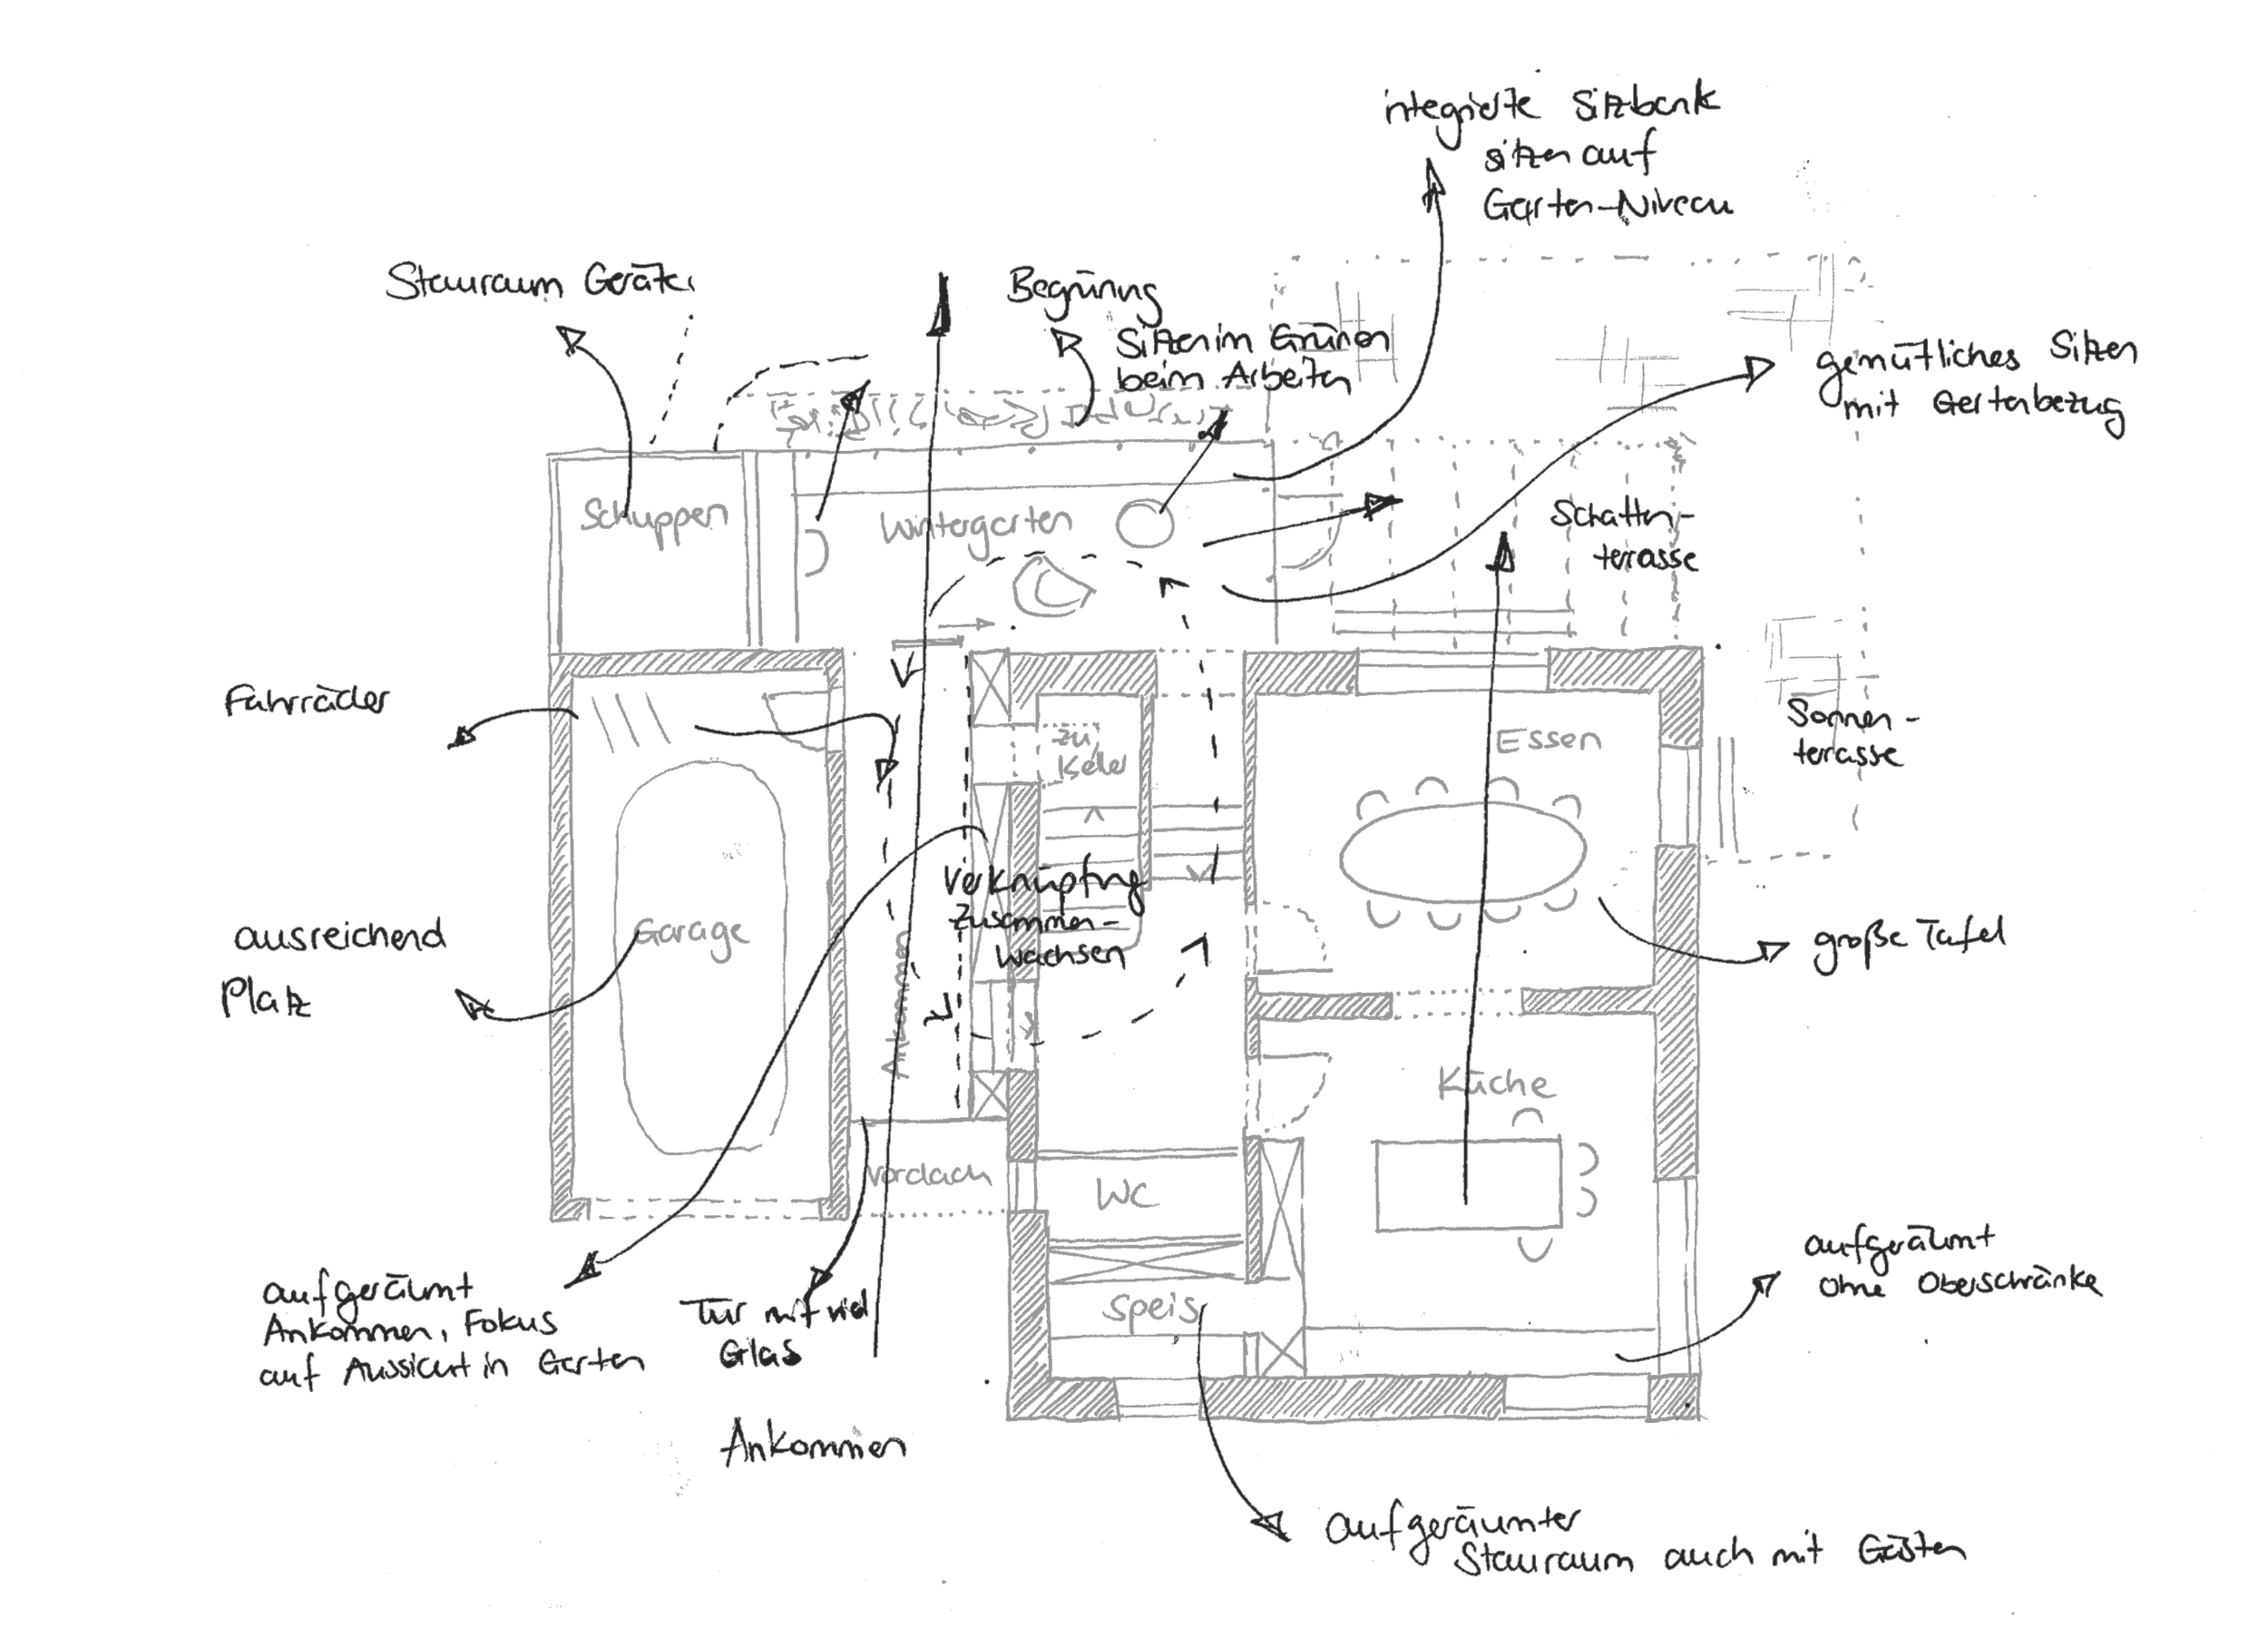 integrierte Sitzbank
sitzen auf
Garten-Niveau
Stauraum Geräte
Begrünung
Sitzen im Grünen
beim Arbeiten
gemütliches Sitzen
mit Gartenbezug
Schuppen
Wintergarten
Schatten-
terrasse
Fahrräder
zu
Keller
Essen
Sonnen-
terrasse
Verknüpfung
Zusammen-
Wachsen
ausreichend
Platz
Garage
Ankommen
große Tafel
Küche
Vordach
WC
aufgeräumt
ohne Oberschränke
aufgeräumt
Ankommen, Fokus
auf Aussicht in Garten
Tür mit viel
Glas
Speis
Ankommen
aufgeräumter
Stauraum auch mit Gästen